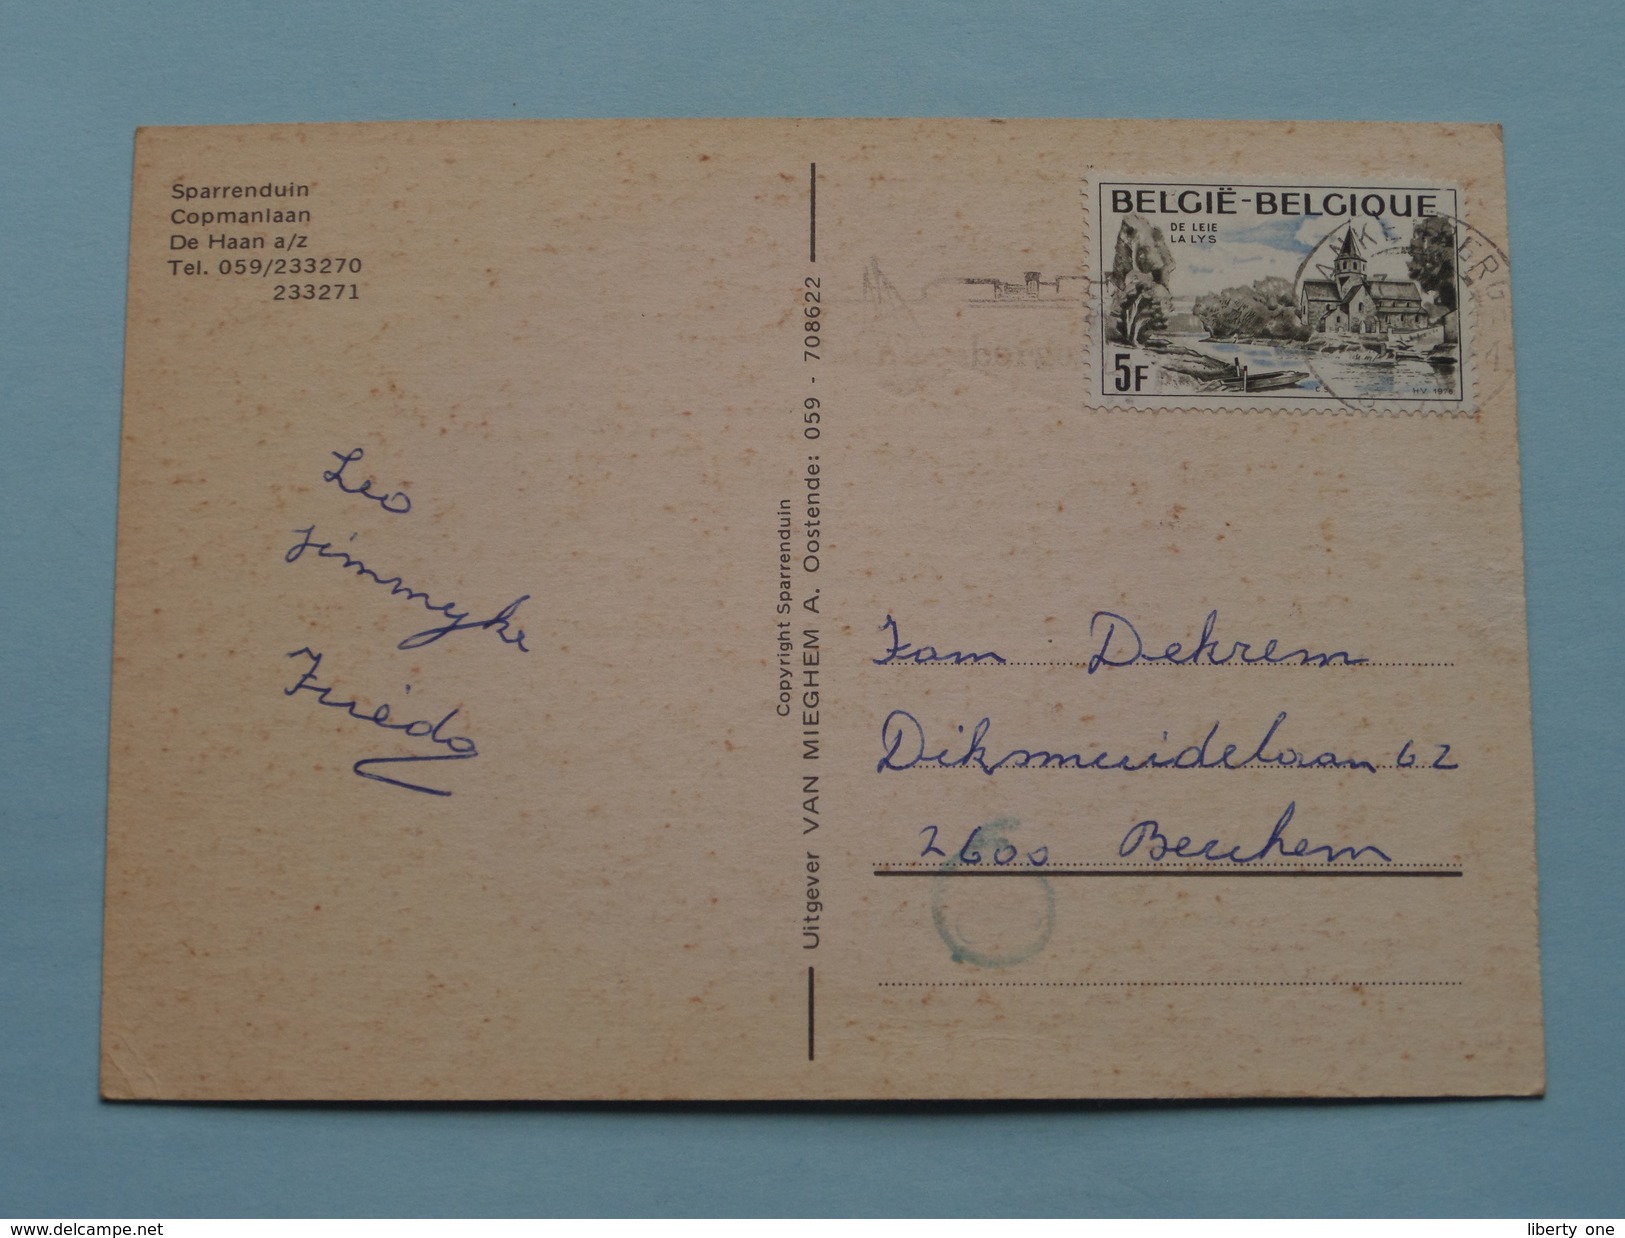 Sparrenduin
Copmanlaan
De Haan a/z
Tel. 059/233270
233271
Leo
Jimmyke
Frieda
Copyright Sparrenduin
Uitgever VAN MIEGHEM A. Oostende: 059 - 708622
BELGIË-BELGIQUE
DE LEIE
LA LYS
5F
H.V. 1976
Fam Dekrem
Diksmuidelaan 62
2600 Berchem
www.delcampe.net
liberty one